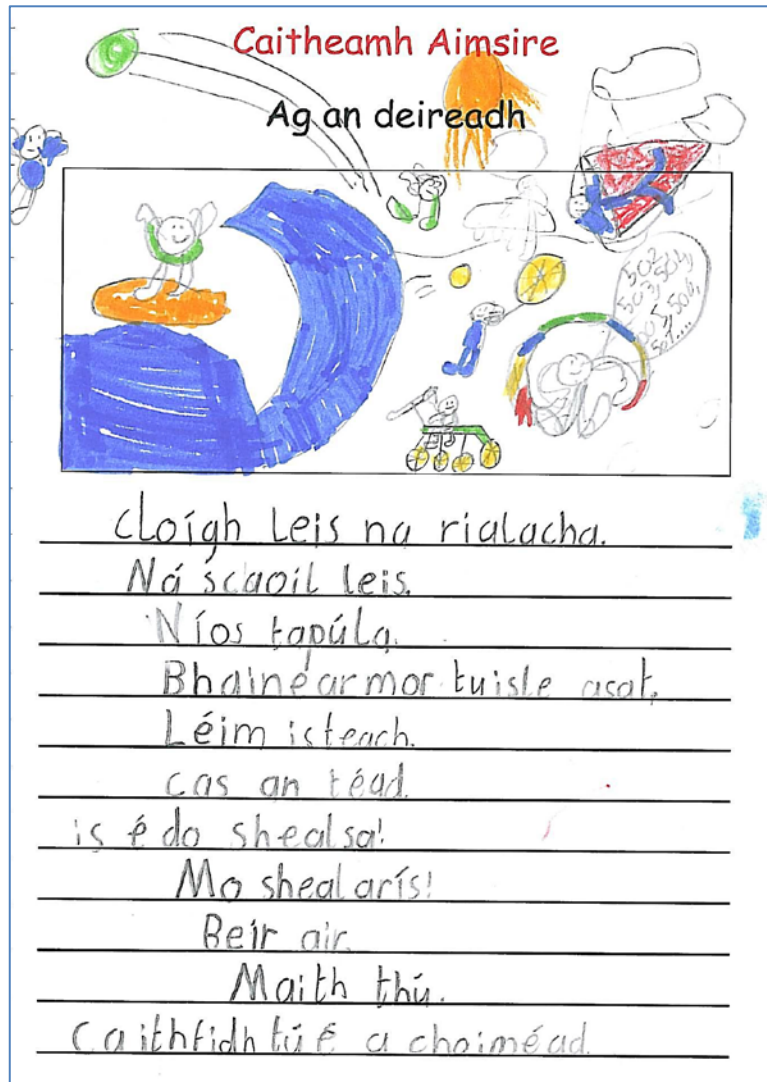 Caitheamh Aimsire
Ag an deireadh
502,
503, 504,
505, 506,
507....
cloígh leis na rialacha.
Ná scaoil leis.
Níos tapúla.
Bhain é armor tuisle asat.
Léim isteach.
cas an téad.
is é do shealsa!
Mo sheal arís!
Beir air.
Maith thú.
Caithfidh tú é a choiméad.